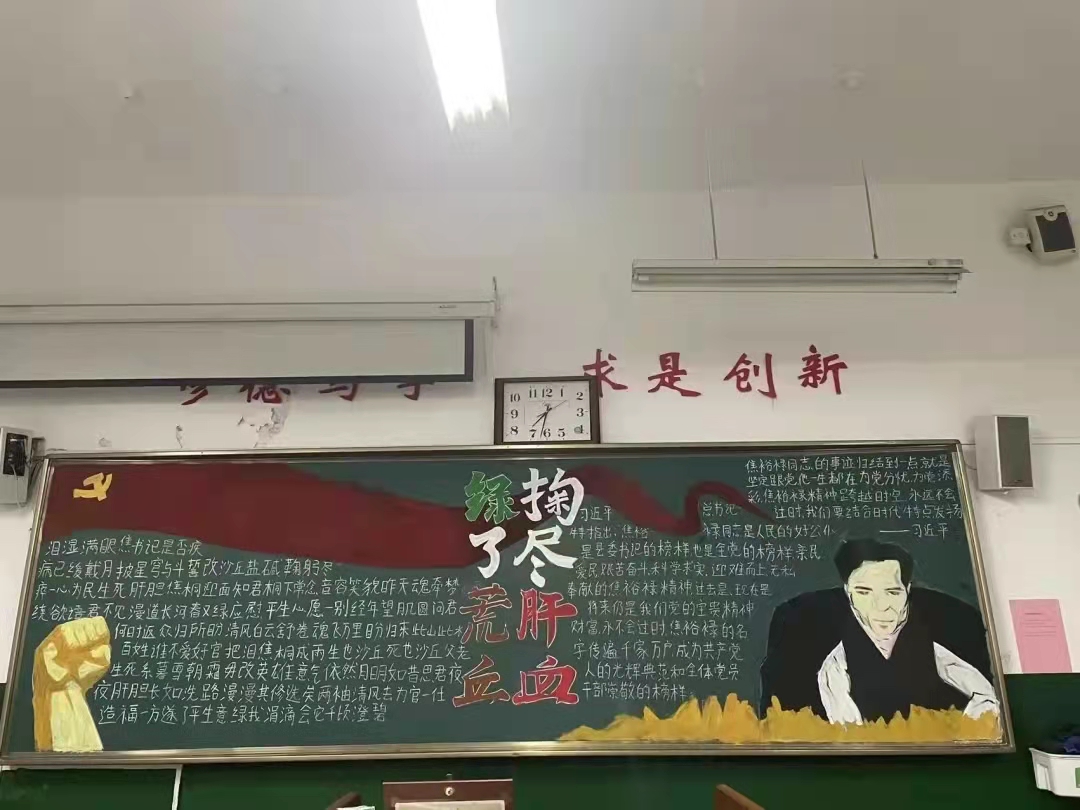 求是创新
10 11 12 1 2
9 3
8 7 6 5
掬尽肝血
绿了荒丘
泪湿满眼焦书记是否疾
病已缓戴月披星宫与斗誓改沙丘盐砥鞠躬尽
疾一心为民生死肝胆焦桐迎面知君桐下常念音容笑貌昨天魂牵梦
绕欲语君不见漫道长河看又绿应慰平生心愿一别经年望眼圆问君
何时返众归所盼清风白云舒卷魂飞万里盼归来此山此水
百姓谁不爱好官把泪焦桐成雨生也沙丘死也沙丘父老
生死系暮雪朝霜毋改英雄任意气依然月明如昔思君夜
夜肝胆长如洗路漫漫其修远矣两袖清风去为官一任
造福一方遂了平生意绿我涓滴会它千顷澄碧
焦裕禄同志的事迹归结到一点就是
坚定跟党他一生都在为党分忧为党添
彩焦裕禄精神跨越时空永远不会
过时我们要结合时代特点发扬
——习近平
习近平总书记
特指出:焦裕禄同志是人民的好公仆
是县委书记的榜样也是全党的榜样亲民
爱民艰苦奋斗科学求实,迎难而上无私
奉献的焦裕禄精神过去、现在是
将来仍是我们党的宝贵精神
财富,永不会过时,焦裕禄的名
字传遍千家万户成为共产党
人的光辉典范和全体党员
干部崇敬的榜样。